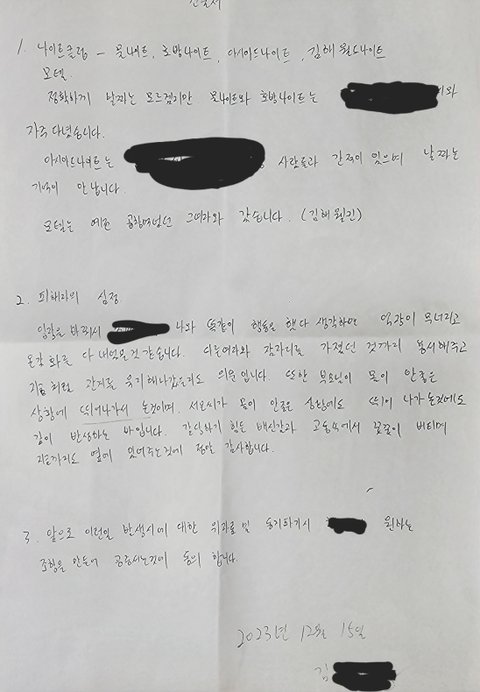 진술서
1. 나이트클럽 - 물나이트, 호박나이트, 아시아드나이트, 김해 월드나이트
모텔.
정확하게 날짜는 모르겠지만 물나이트와 호박나이트는
자주 다녔습니다.
아시아드나이트는 사람들과 간적이 있으며 날짜는
기억이 안납니다.
모텔은 예전 그여자와 갔습니다. (김해
2. 피해자의 심정
입장을 바꿔서 나와 똑같이 행동을 했다 생각하면 억장이 무너지고
온갖 화를 다 내었을것 같습니다. 다른여자와 잠자리를 가졌던 것까지 용서해주고
지금처럼 관계를 유지해나갔을지도 의문입니다. 또한 부모님이 몸이 안좋은
상황에 뛰어나가서 논것이며, 몸이 안좋은 상황에도 뛰어 나가 논것에도
깊이 반성하는 바입니다. 감당하기 힘든 배신감과 고통속에서 꿋꿋이 버티며
지금까지도 옆에 있어주는것에 정말 감사합니다.
3. 앞으로 이런일 발생시에 대한 위자료 및 원하는
조항을 만들어 공증서는것에 동의 합니다.
2023년 12월 15일
김